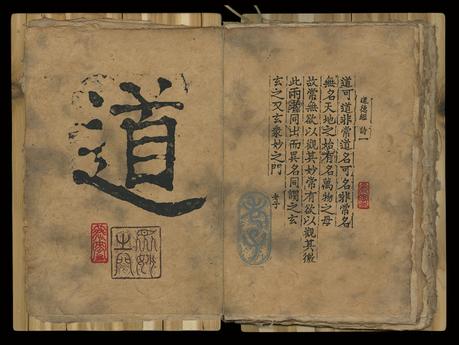 道德經 詩一
道可道非常道名可名非常名
無名天地之始有名萬物之母
故常無欲以觀其妙常有欲以觀其徼
此兩者同出而異名同謂之玄
玄之又玄衆妙之門
老子
老子
道
衆妙之門